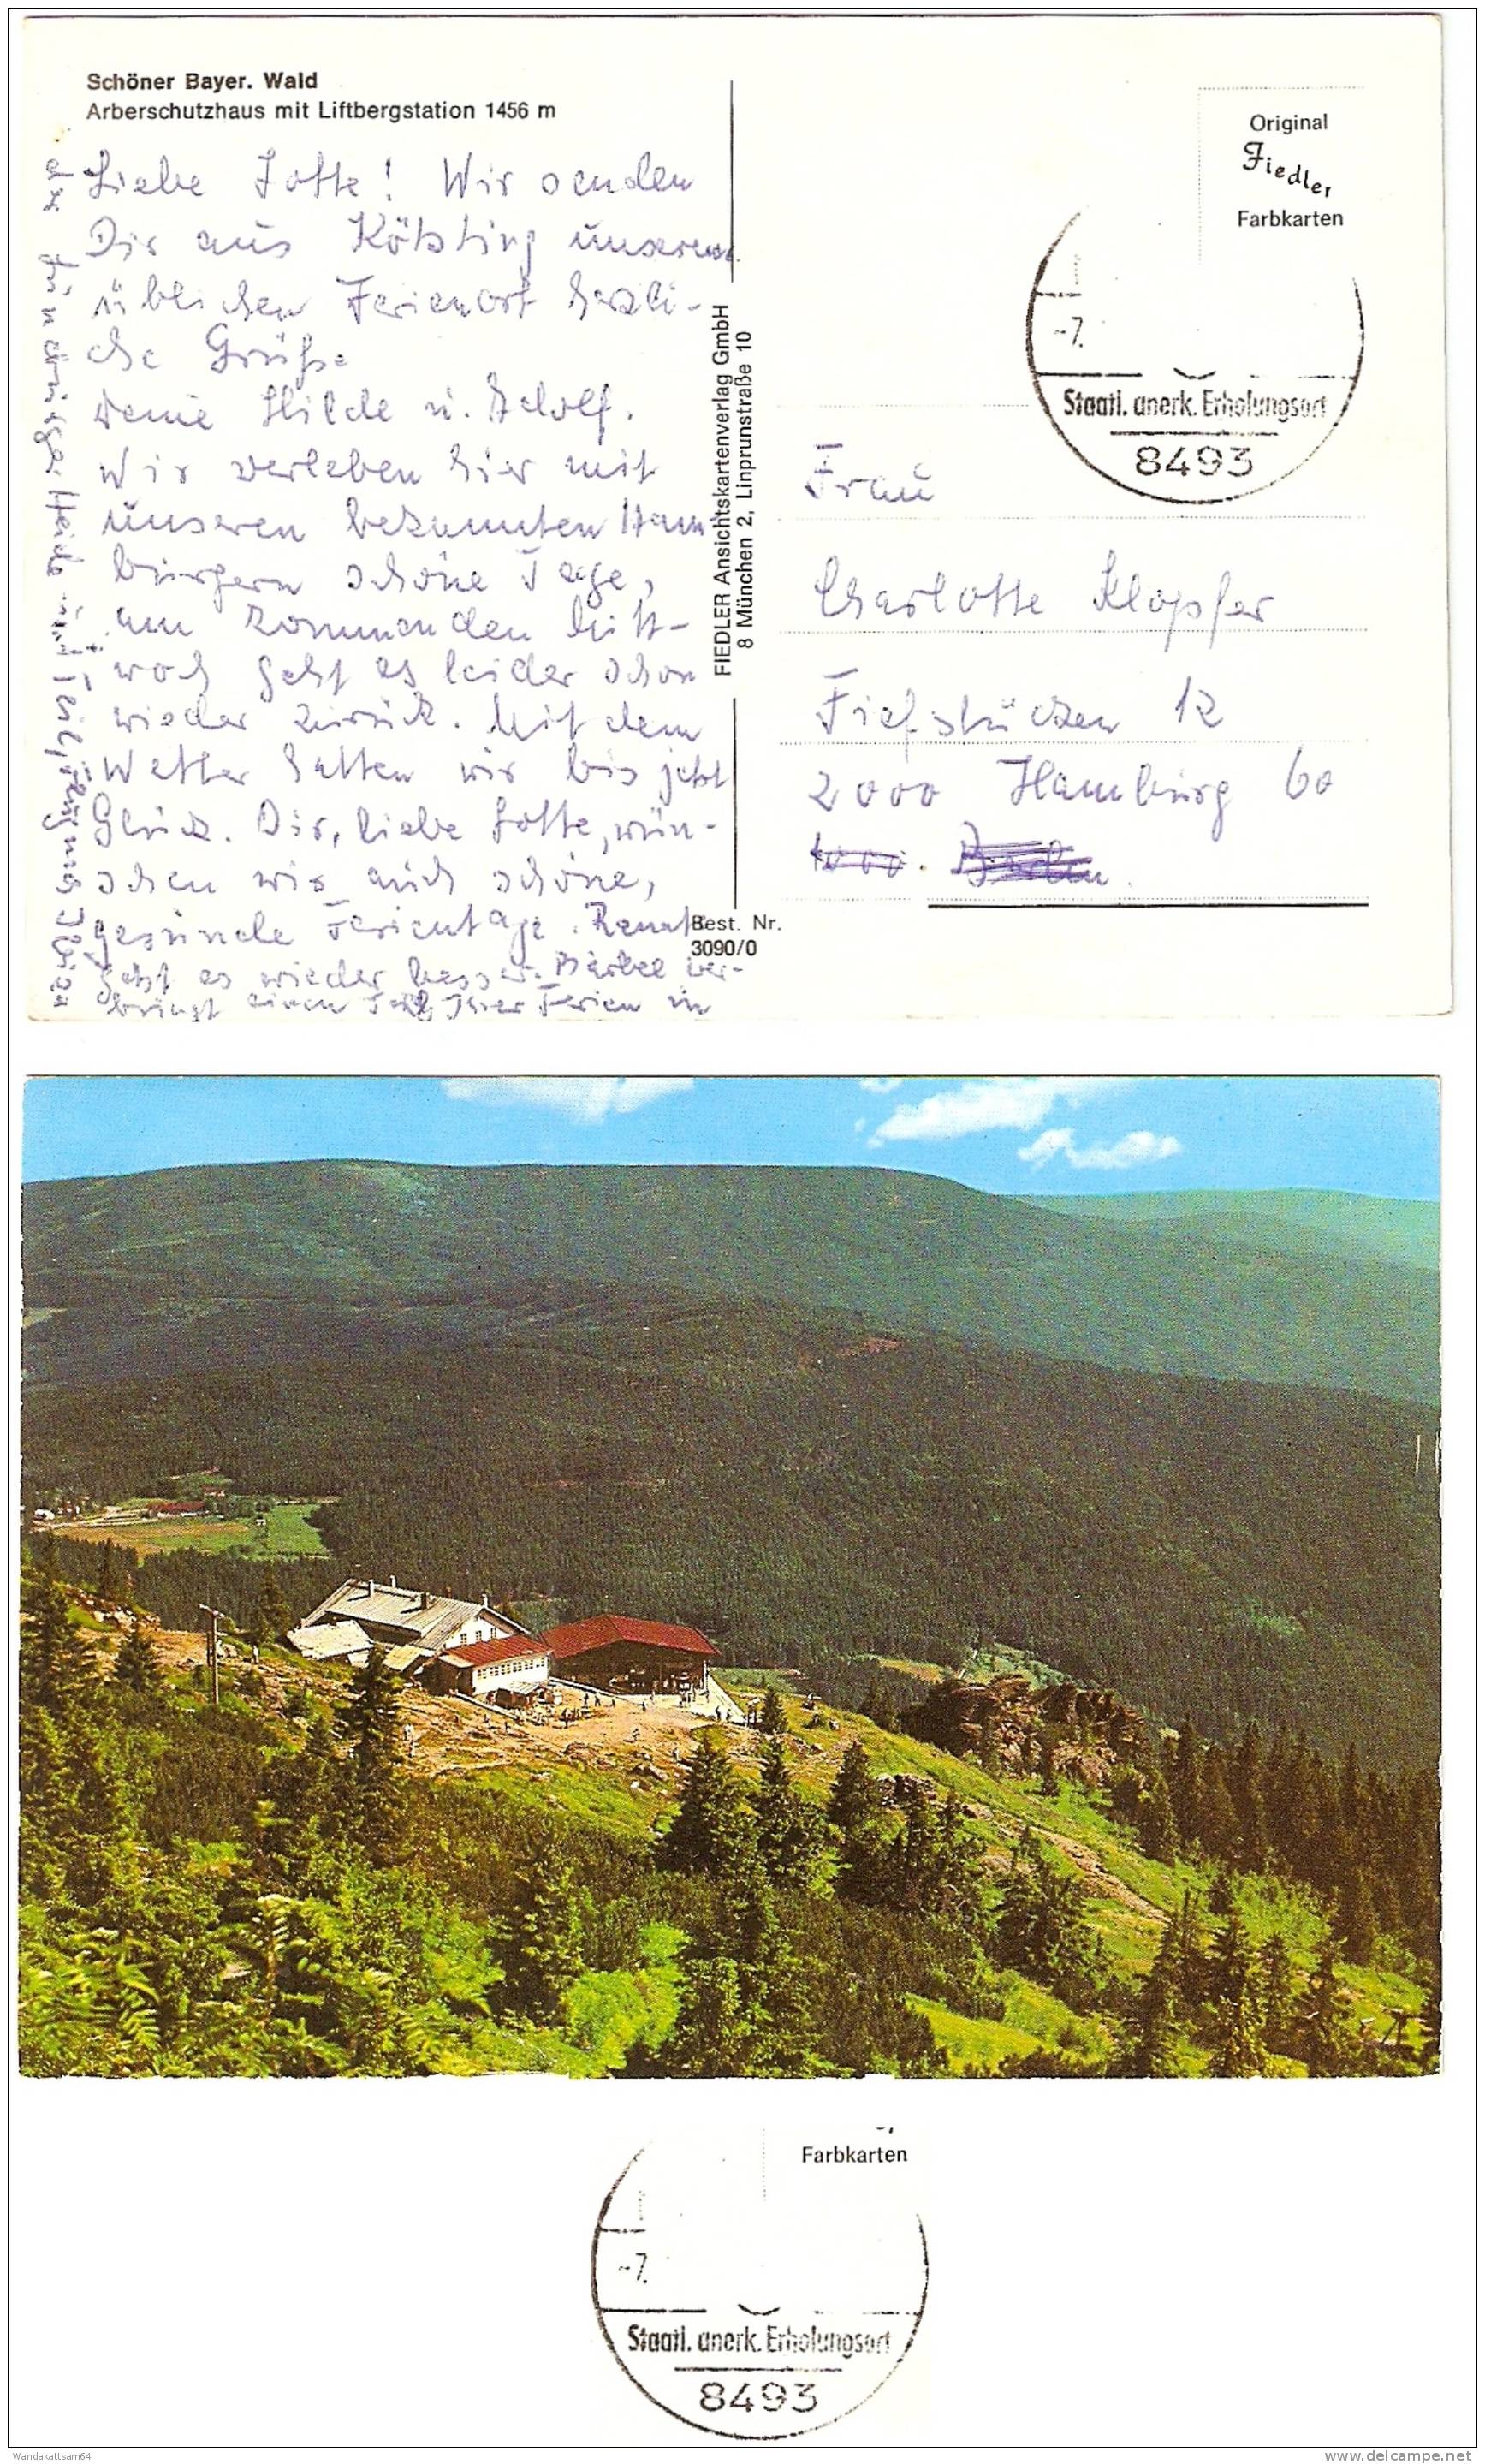 Schöner Bayer. Wald
Arberschutzhaus mit Liftbergstation 1456 m
Liebe Lotte! Wir senden
Dir aus Kötzting unserem
üblichen Ferienort herzli-
che Grüße
Deine Hilde u. Adolf.
Wir verleben hier mit
unseren bekannten Ham-
burgern schöne Tage,
am kommenden Mitt-
woch geht es leider schon
wieder zurück. Mit dem
Wetter hatten wir bis jetzt
Glück. Dir, liebe Lotte, wün-
schen wir auch schöne,
gesunde Ferientage. Renate
geht es wieder besser. Bärbel ver-
bringt einen Teil Ihrer Ferien in
der Lüneburger Heide und Teil
FIEDLER Ansichtskartenverlag GmbH
8 München 2, Linprunstraße 10
Best. Nr.
3090/0
Original
Fiedler
Farbkarten
-7.
Staatl. anerk. Erholungsort
8493
Frau
Charlotte Klopfer
Fiefstücken 12
2000 Hamburg 60
1000 Berlin
Farbkarten
-7.
Staatl. anerk. Erholungsort
8493
Wandakattsam64
delcampe.net